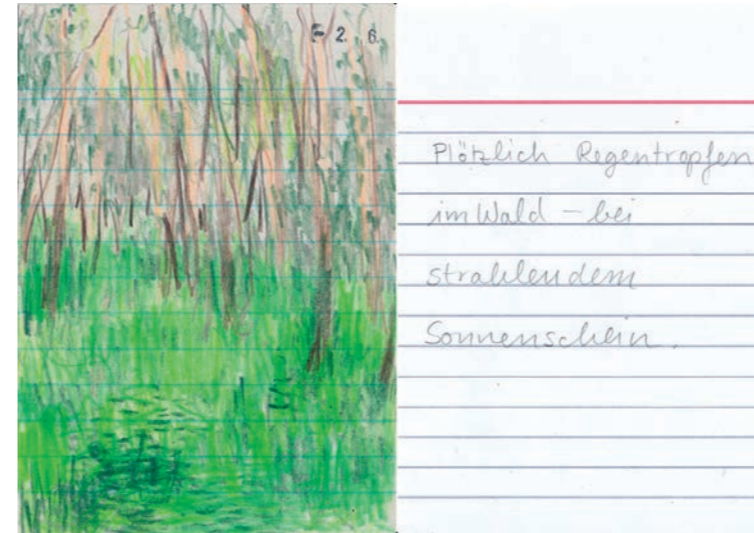 2. 6.
Plötzlich Regentropfen
im Wald – bei
strahlendem
Sonnenschein.